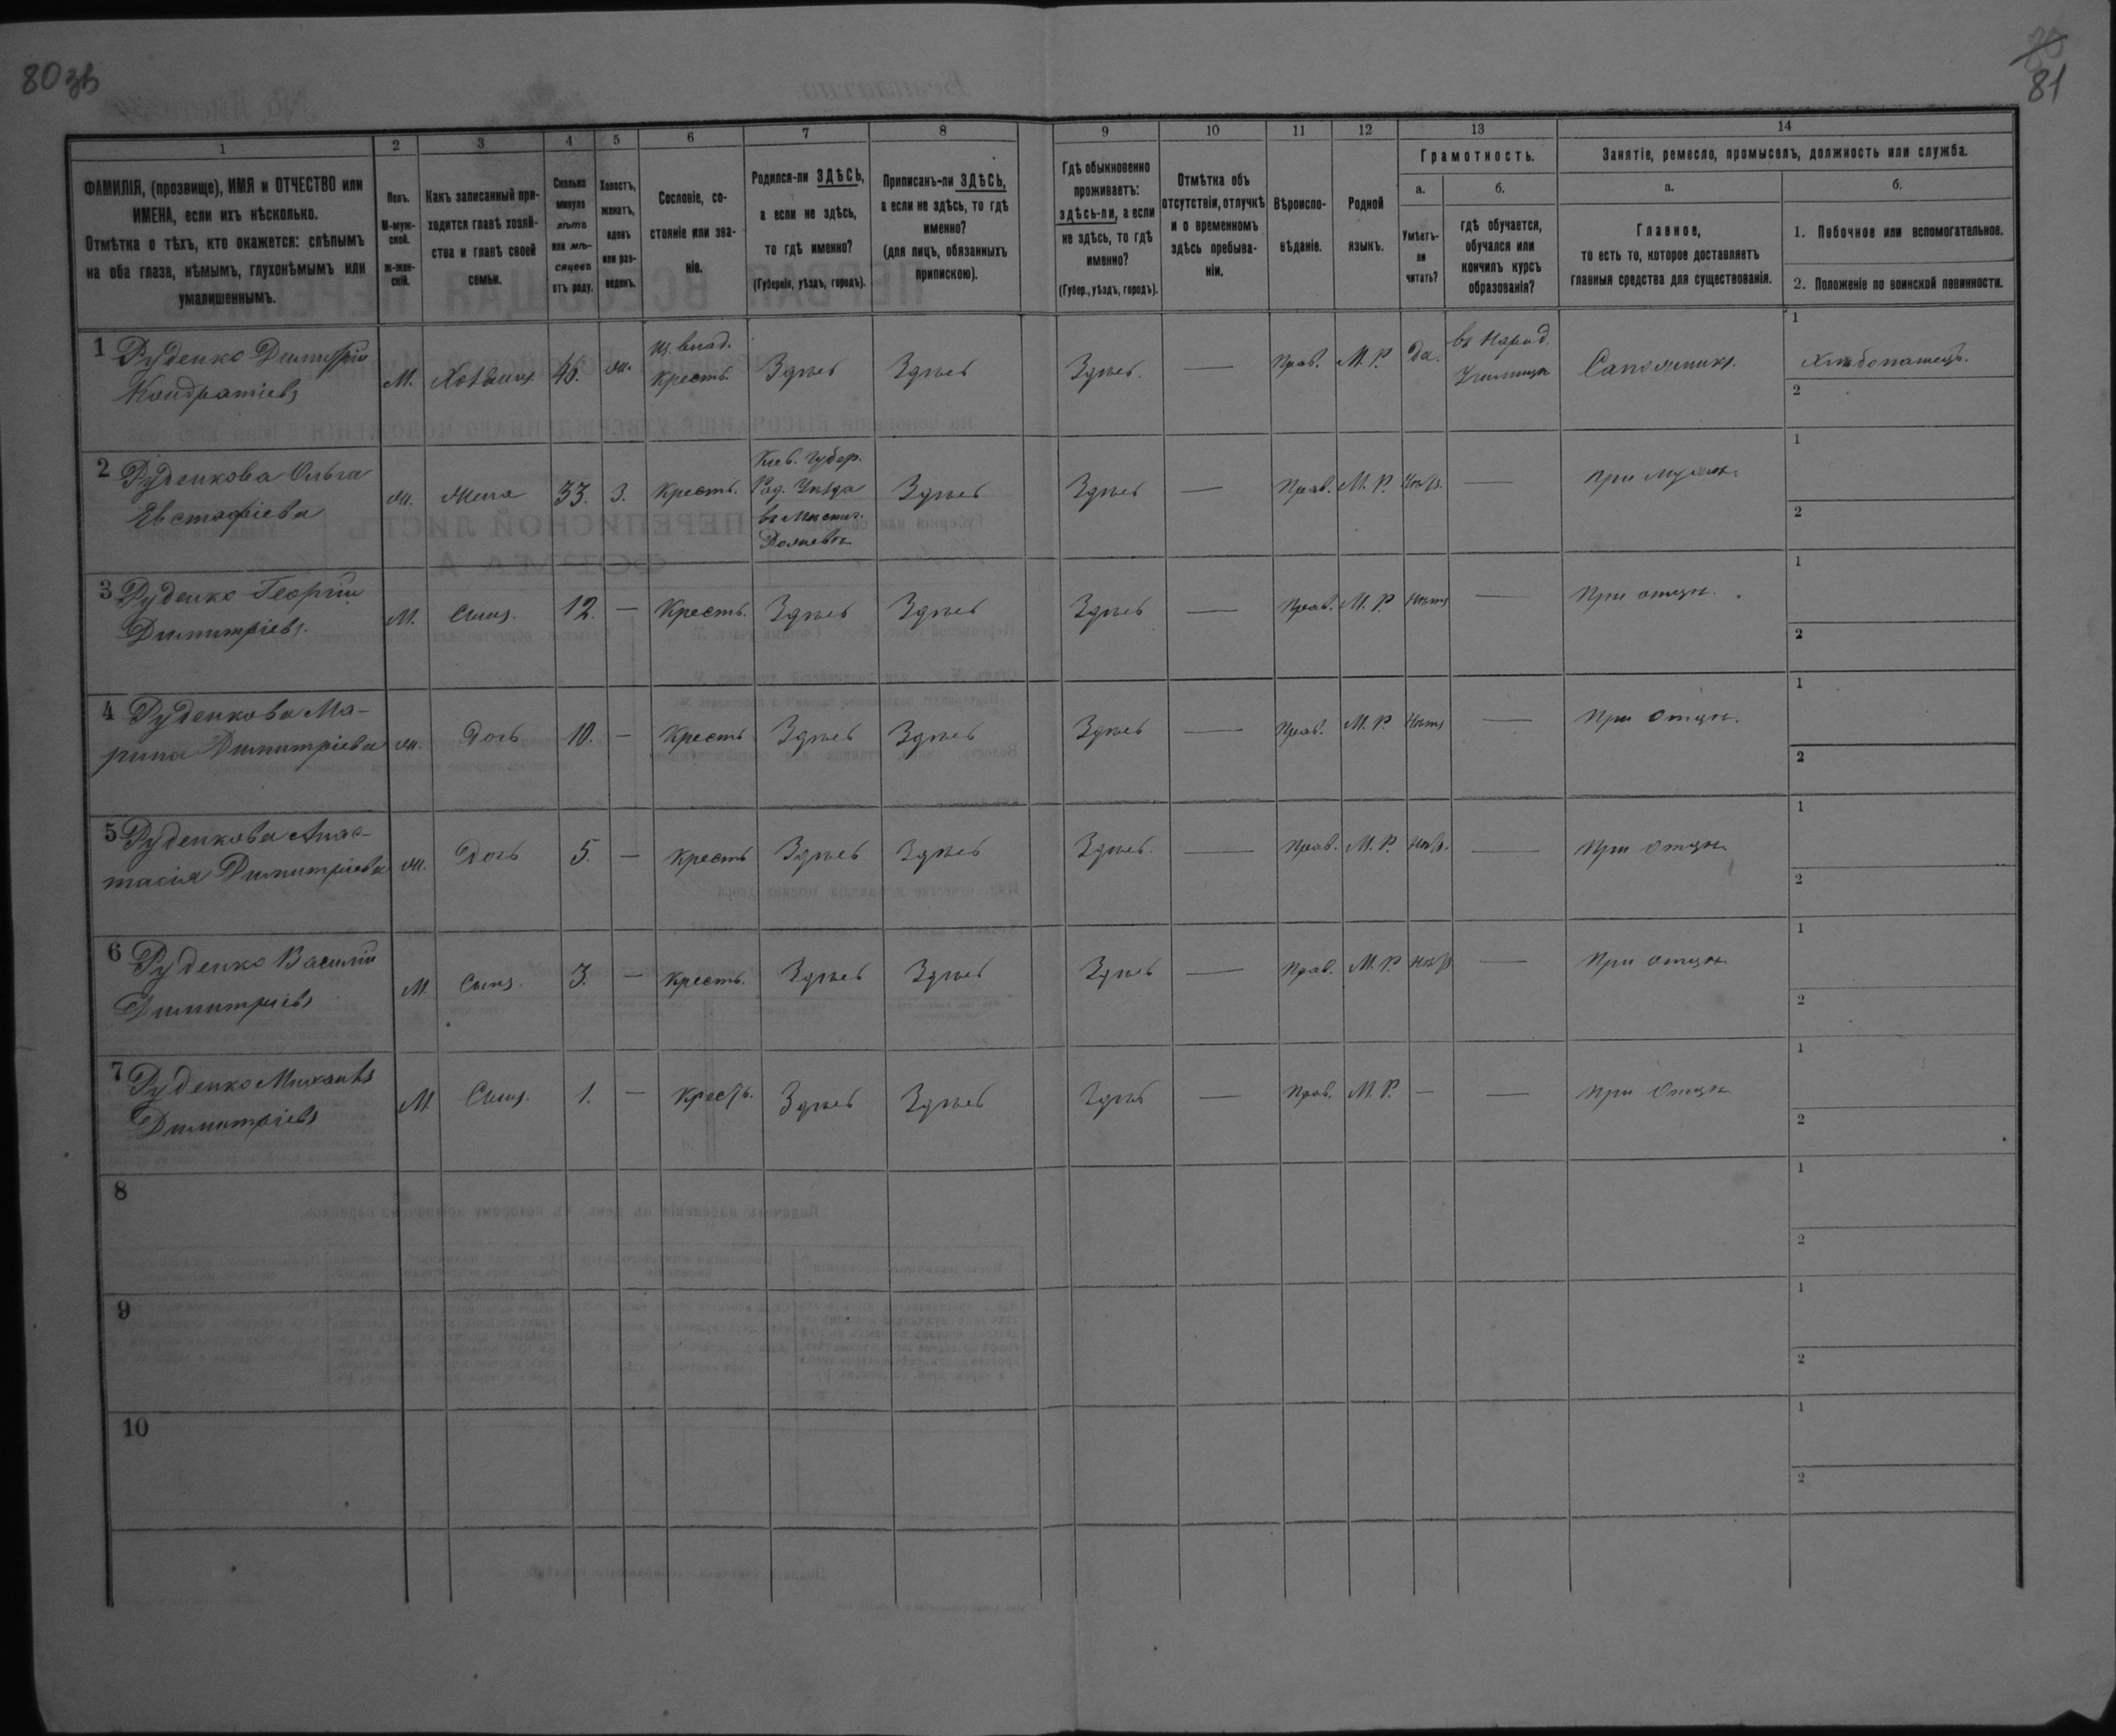 80 зв
80
81
1
2
3
4
5
6
7
8
9
10
11
12
13
14
ФАМИЛІЯ, (прозвище), ИМЯ и ОТЧЕСТВО или
ИМЕНА, если ихъ нѣсколько.
Отмѣтка о тѣхъ, кто окажется: слѣпымъ
на оба глаза, нѣмымъ, глухонѣмымъ или
умалишеннымъ.
Полъ.
М-муж-
ской.
ж-жен-
скій.
Какъ записанный при-
ходится главѣ хозяй-
ства и главѣ своей
семьи.
Сколько
минуло
лѣтъ
или мѣ-
сяцевъ
отъ роду.
Холостъ,
женатъ,
вдовъ
или раз-
веденъ.
Сословіе, со-
стояніе или зва-
ніе.
Родился-ли ЗДѢСЬ,
а если не здѣсь,
то гдѣ именно?
(Губернія, уѣздъ, городъ).
Приписанъ-ли ЗДѢСЬ,
а если не здѣсь, то гдѣ
именно?
(для лицъ, обязанныхъ
припискою).
Гдѣ обыкновенно
проживаетъ:
здѣсь-ли, а если
не здѣсь, то гдѣ
именно?
(Губер., уѣздъ, городъ).
Отмѣтка объ
отсутствіи, отлучкѣ
и о временномъ
здѣсь пребыва-
ніи.
Вѣроиспо-
вѣданіе.
Родной
языкъ.
Грамотность.
а.
Умѣетъ-
ли
читать?
б.
гдѣ обучается,
обучался или
кончилъ курсъ
образованія?
Занятіе, ремесло, промыселъ, должность или служба.
а.
Главное,
то есть то, которое доставляетъ
главныя средства для существованія.
б.
1. Побочное или вспомогательное.
2. Положеніе по воинской повинности.
1 Руденко Димитрій
Кондратіевъ
М. Хозяинъ 40. ж. Из. влад.
Крестъ. Здѣсь Здѣсь Здѣсь. — Прав. М. Р. Да. въ Народ.
Училищѣ Сапожникъ. 1 Хлѣбопашецъ.
2
2 Руденкова Ольга
Евстафіева
ж. Жена 33. З. Крестъ. Кіев. Губер.
Рад. Уѣзда
въ Мѣстеч.
Здѣсь Здѣсь — Прав. М. Р. Нѣтъ. — При мужѣ. 1
2
3 Руденко Георгій
Димитріевъ.
М. Сынъ. 12. — Крестъ. Здѣсь Здѣсь Здѣсь — Прав. М. Р. Нѣтъ — При отцѣ. 1
2
4 Руденкова Ма-
рина Димитріева
ж. Дочь 10. — Крестъ Здѣсь Здѣсь Здѣсь — Прав. М. Р. Нѣтъ — При отцѣ. 1
2
5 Руденкова Анас-
тасія Димитріева
ж. Дочь 5. — Крестъ Здѣсь Здѣсь Здѣсь. — Прав. М. Р. Нѣтъ. — При отцѣ 1
2
6 Руденко Василій
Димитріевъ
М. Сынъ. 3. — Крестъ. Здѣсь Здѣсь Здѣсь — Прав. М. Р. Нѣтъ — При отцѣ 1
2
7 Руденко Михаилъ
Димитріевъ
М. Сынъ. 1. — Крестъ. Здѣсь Здѣсь Здѣсь — Прав. М. Р. — — При отцѣ 1
2
8
1
2
9
1
2
10
1
2